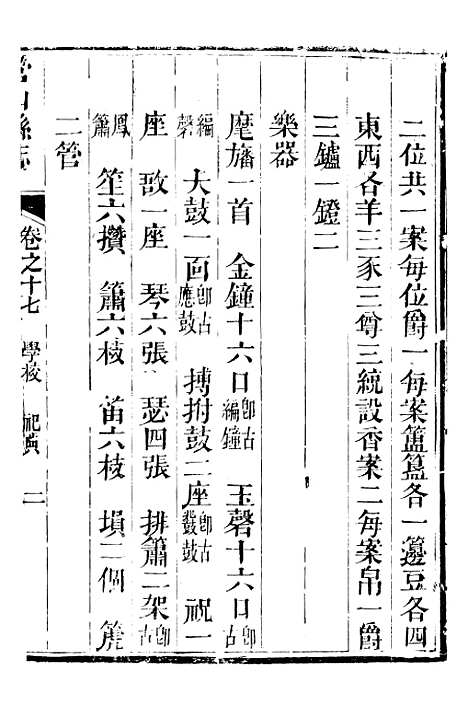 二位共一案每位爵一每案簠簋各一籩豆各四
東西各羊三豕三尊三統設香案二每案帛一爵
三鑪一鐙二
樂器
麾旛一首　金鐘十六口卽古編鐘　玉磬十六口卽古
編磬　大鼓一面卽古應鼓　搏拊鼓二座卽古鼗鼓　祝一
座　敔一座　琴六張　瑟四張　排簫二架卽古
鳳簫　笙六攢　簫六枝　笛六枝　塤二個　篪
二管
營山縣志　卷之十七　學校　祀典　二